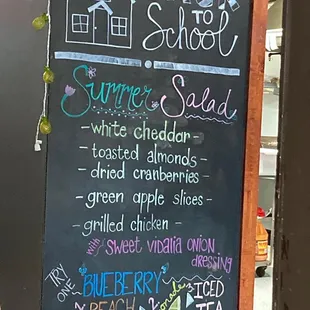 TO
School
Summer Salad
- white cheddar -
- toasted almonds -
- dried cranberries -
- green apple slices -
- grilled chicken -
with Sweet Vidalia Onion
dressing
TRY
ONE
BLUEBERRY
PEACH
ICED
TEA